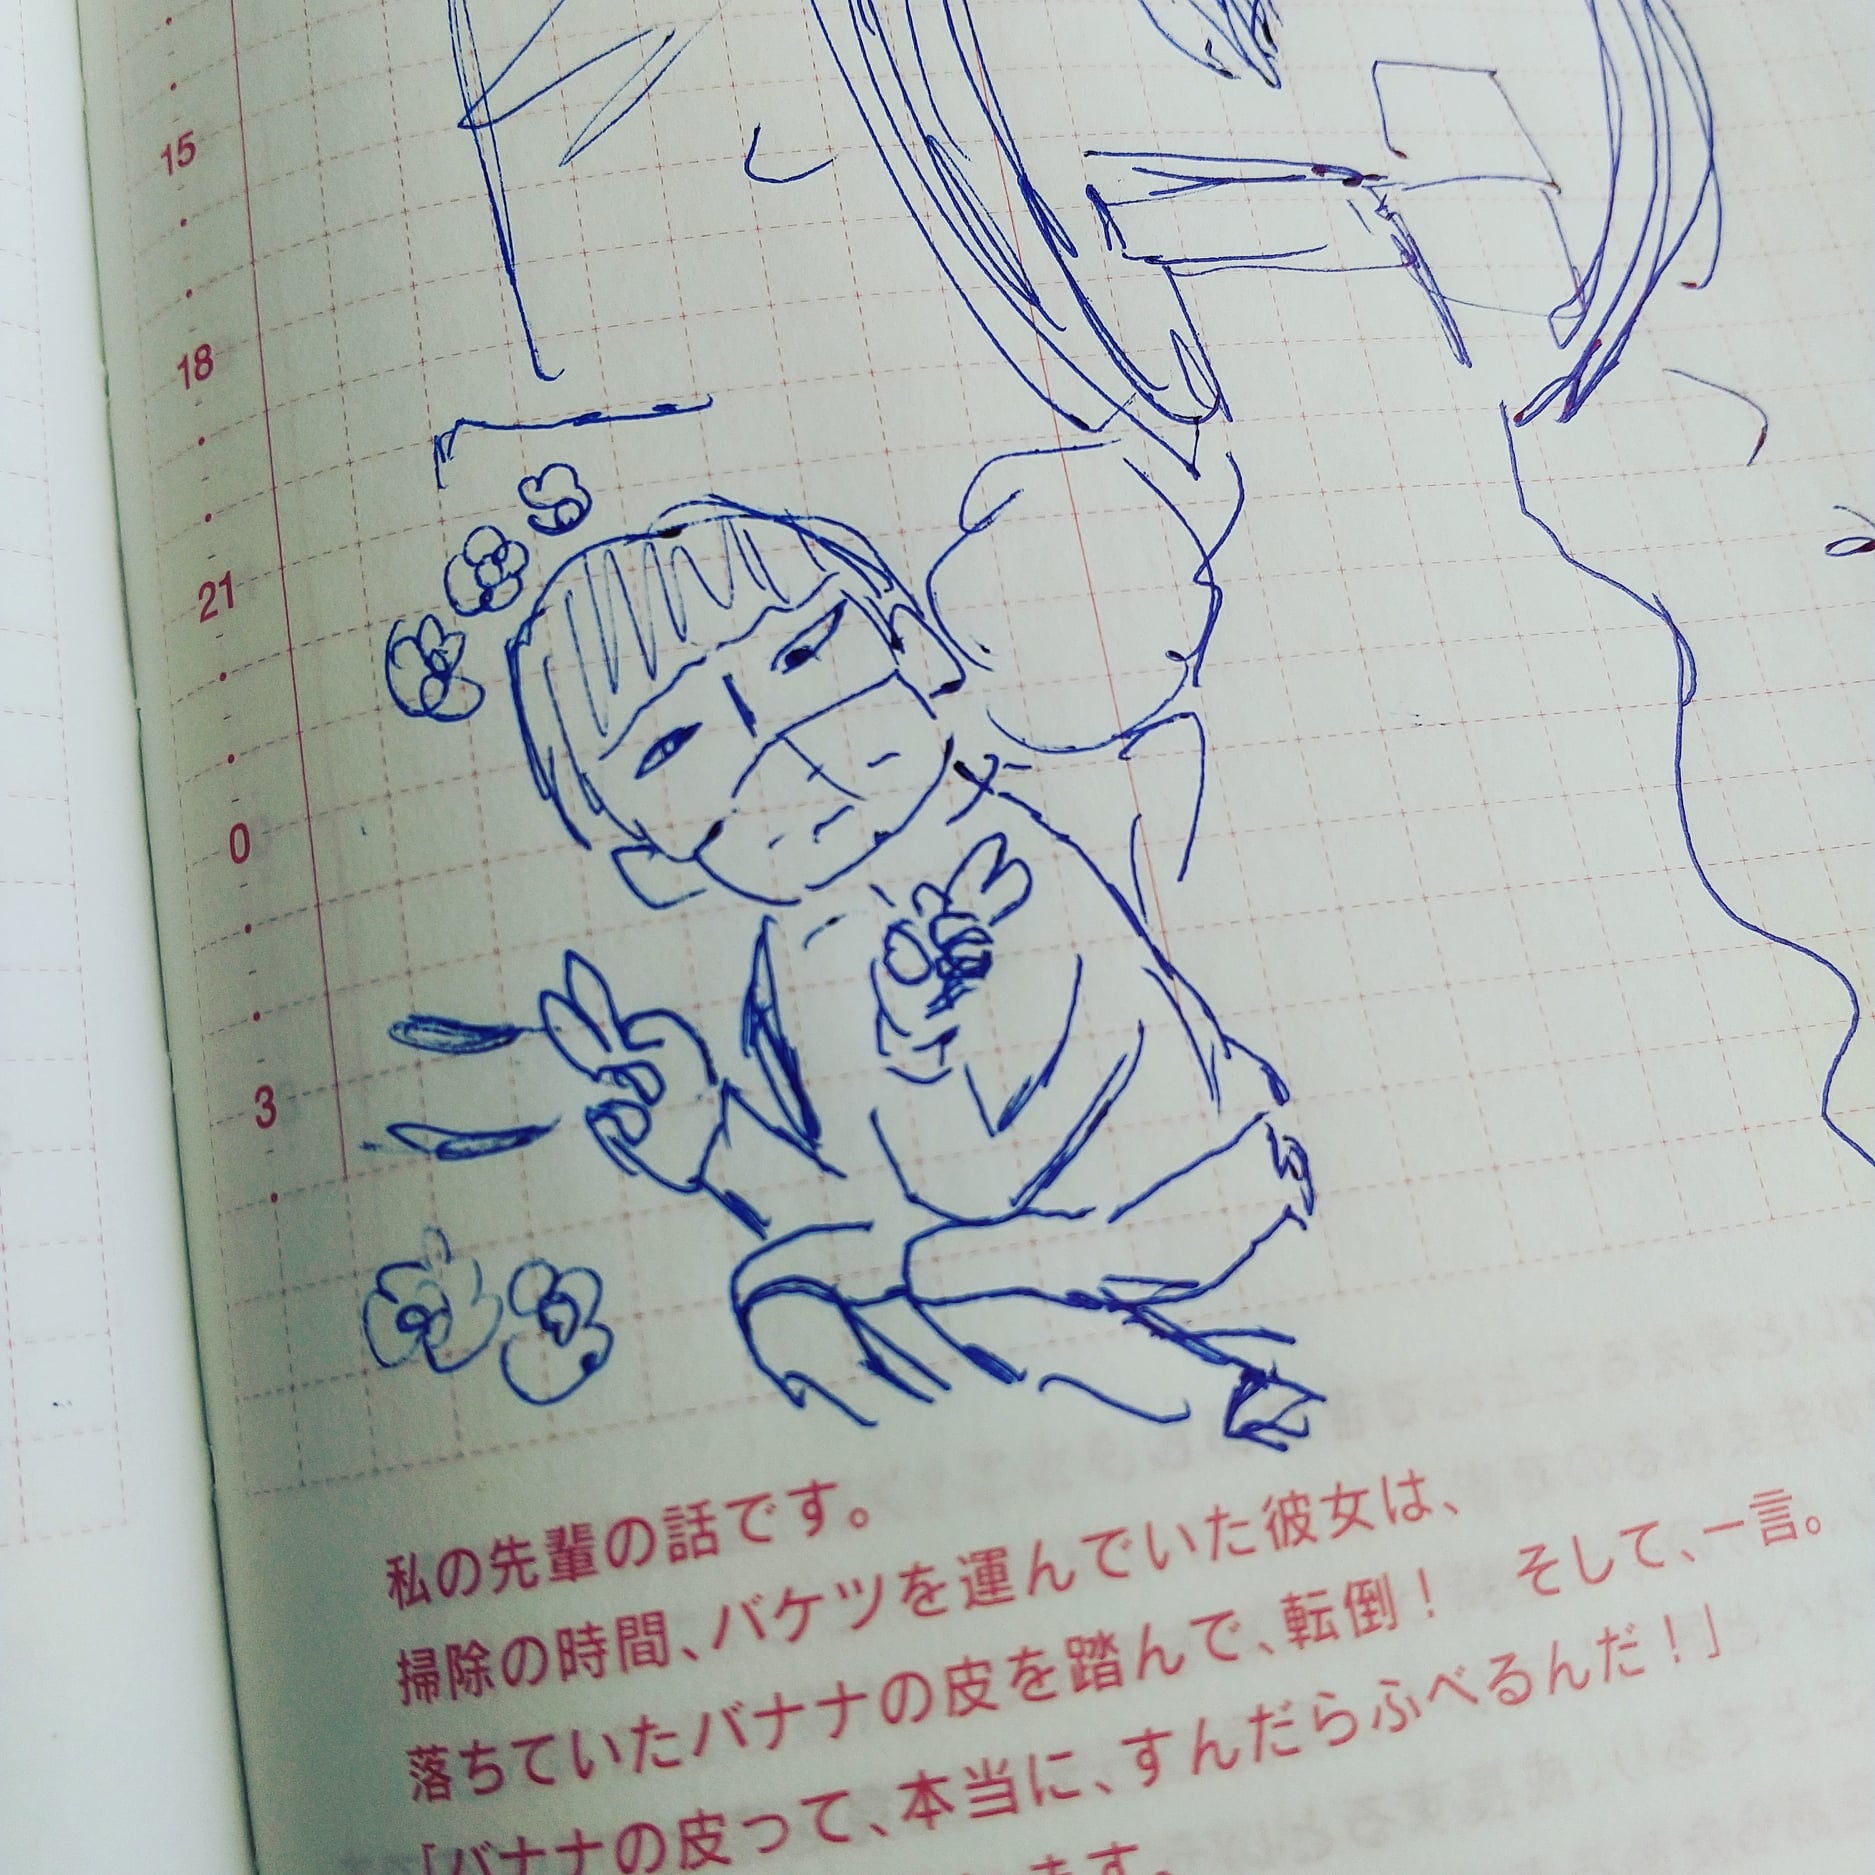 15
18
21
0
3
私の先輩の話です。
掃除の時間、バケツを運んでいた彼女は、
落ちていたバナナの皮を踏んで、転倒！　そして、一言。
「バナナの皮って、本当に、すんだらふべるんだ！」
ます。